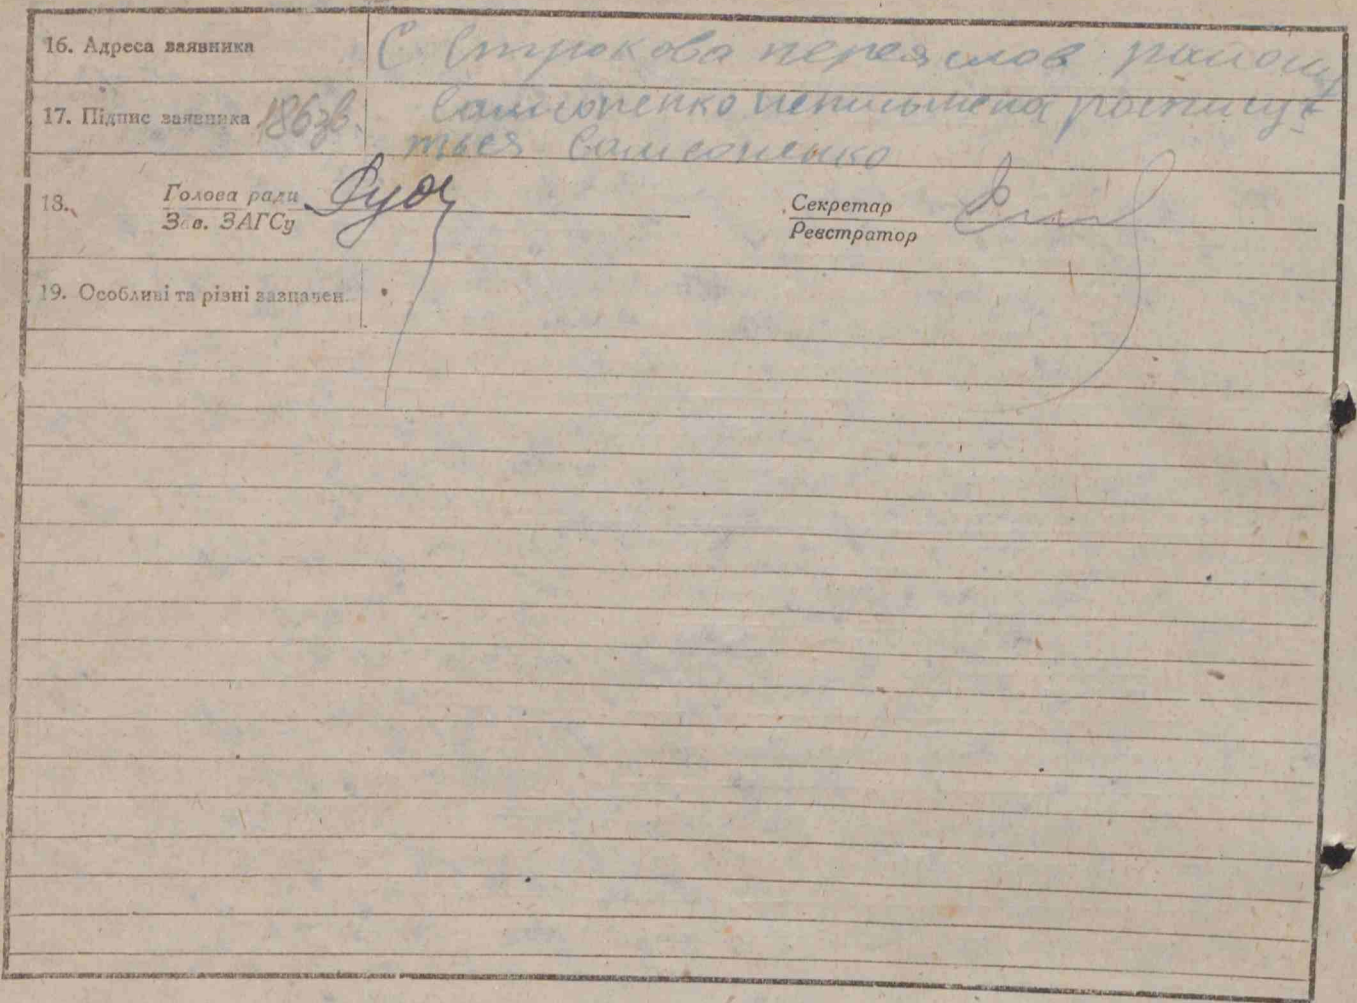 16. Адреса заявника С Строкова переяслов району
17. Підпис заявника 186зв. Самсоненко неписьмена росписує
ться Самсоненко
18. Голова ради Секретар
Зав. ЗАГСу Реєстратор
19. Особливі та різні зазначен.